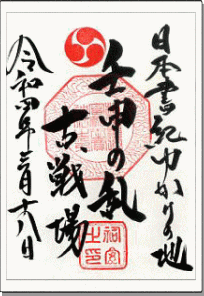 日本書紀ゆかりの地
壬申の乱
古戦場
令和四年三月十八日